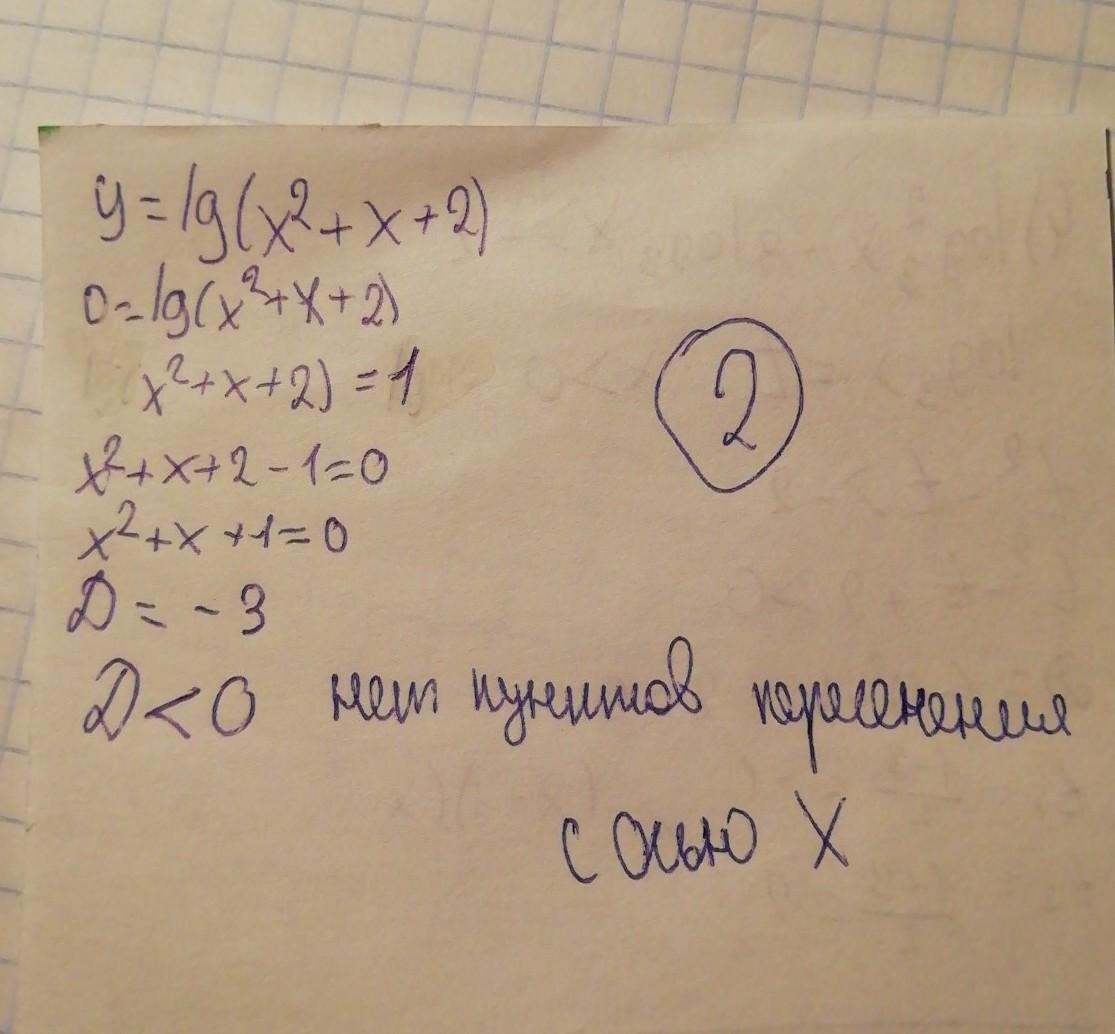 y = lg(x² + x + 2)
0 = lg(x² + x + 2)
x² + x + 2) = 1
x² + x + 2 - 1 = 0
x² + x + 1 = 0
2
D = - 3
D < 0 нет пунктов пересечения
с осью X